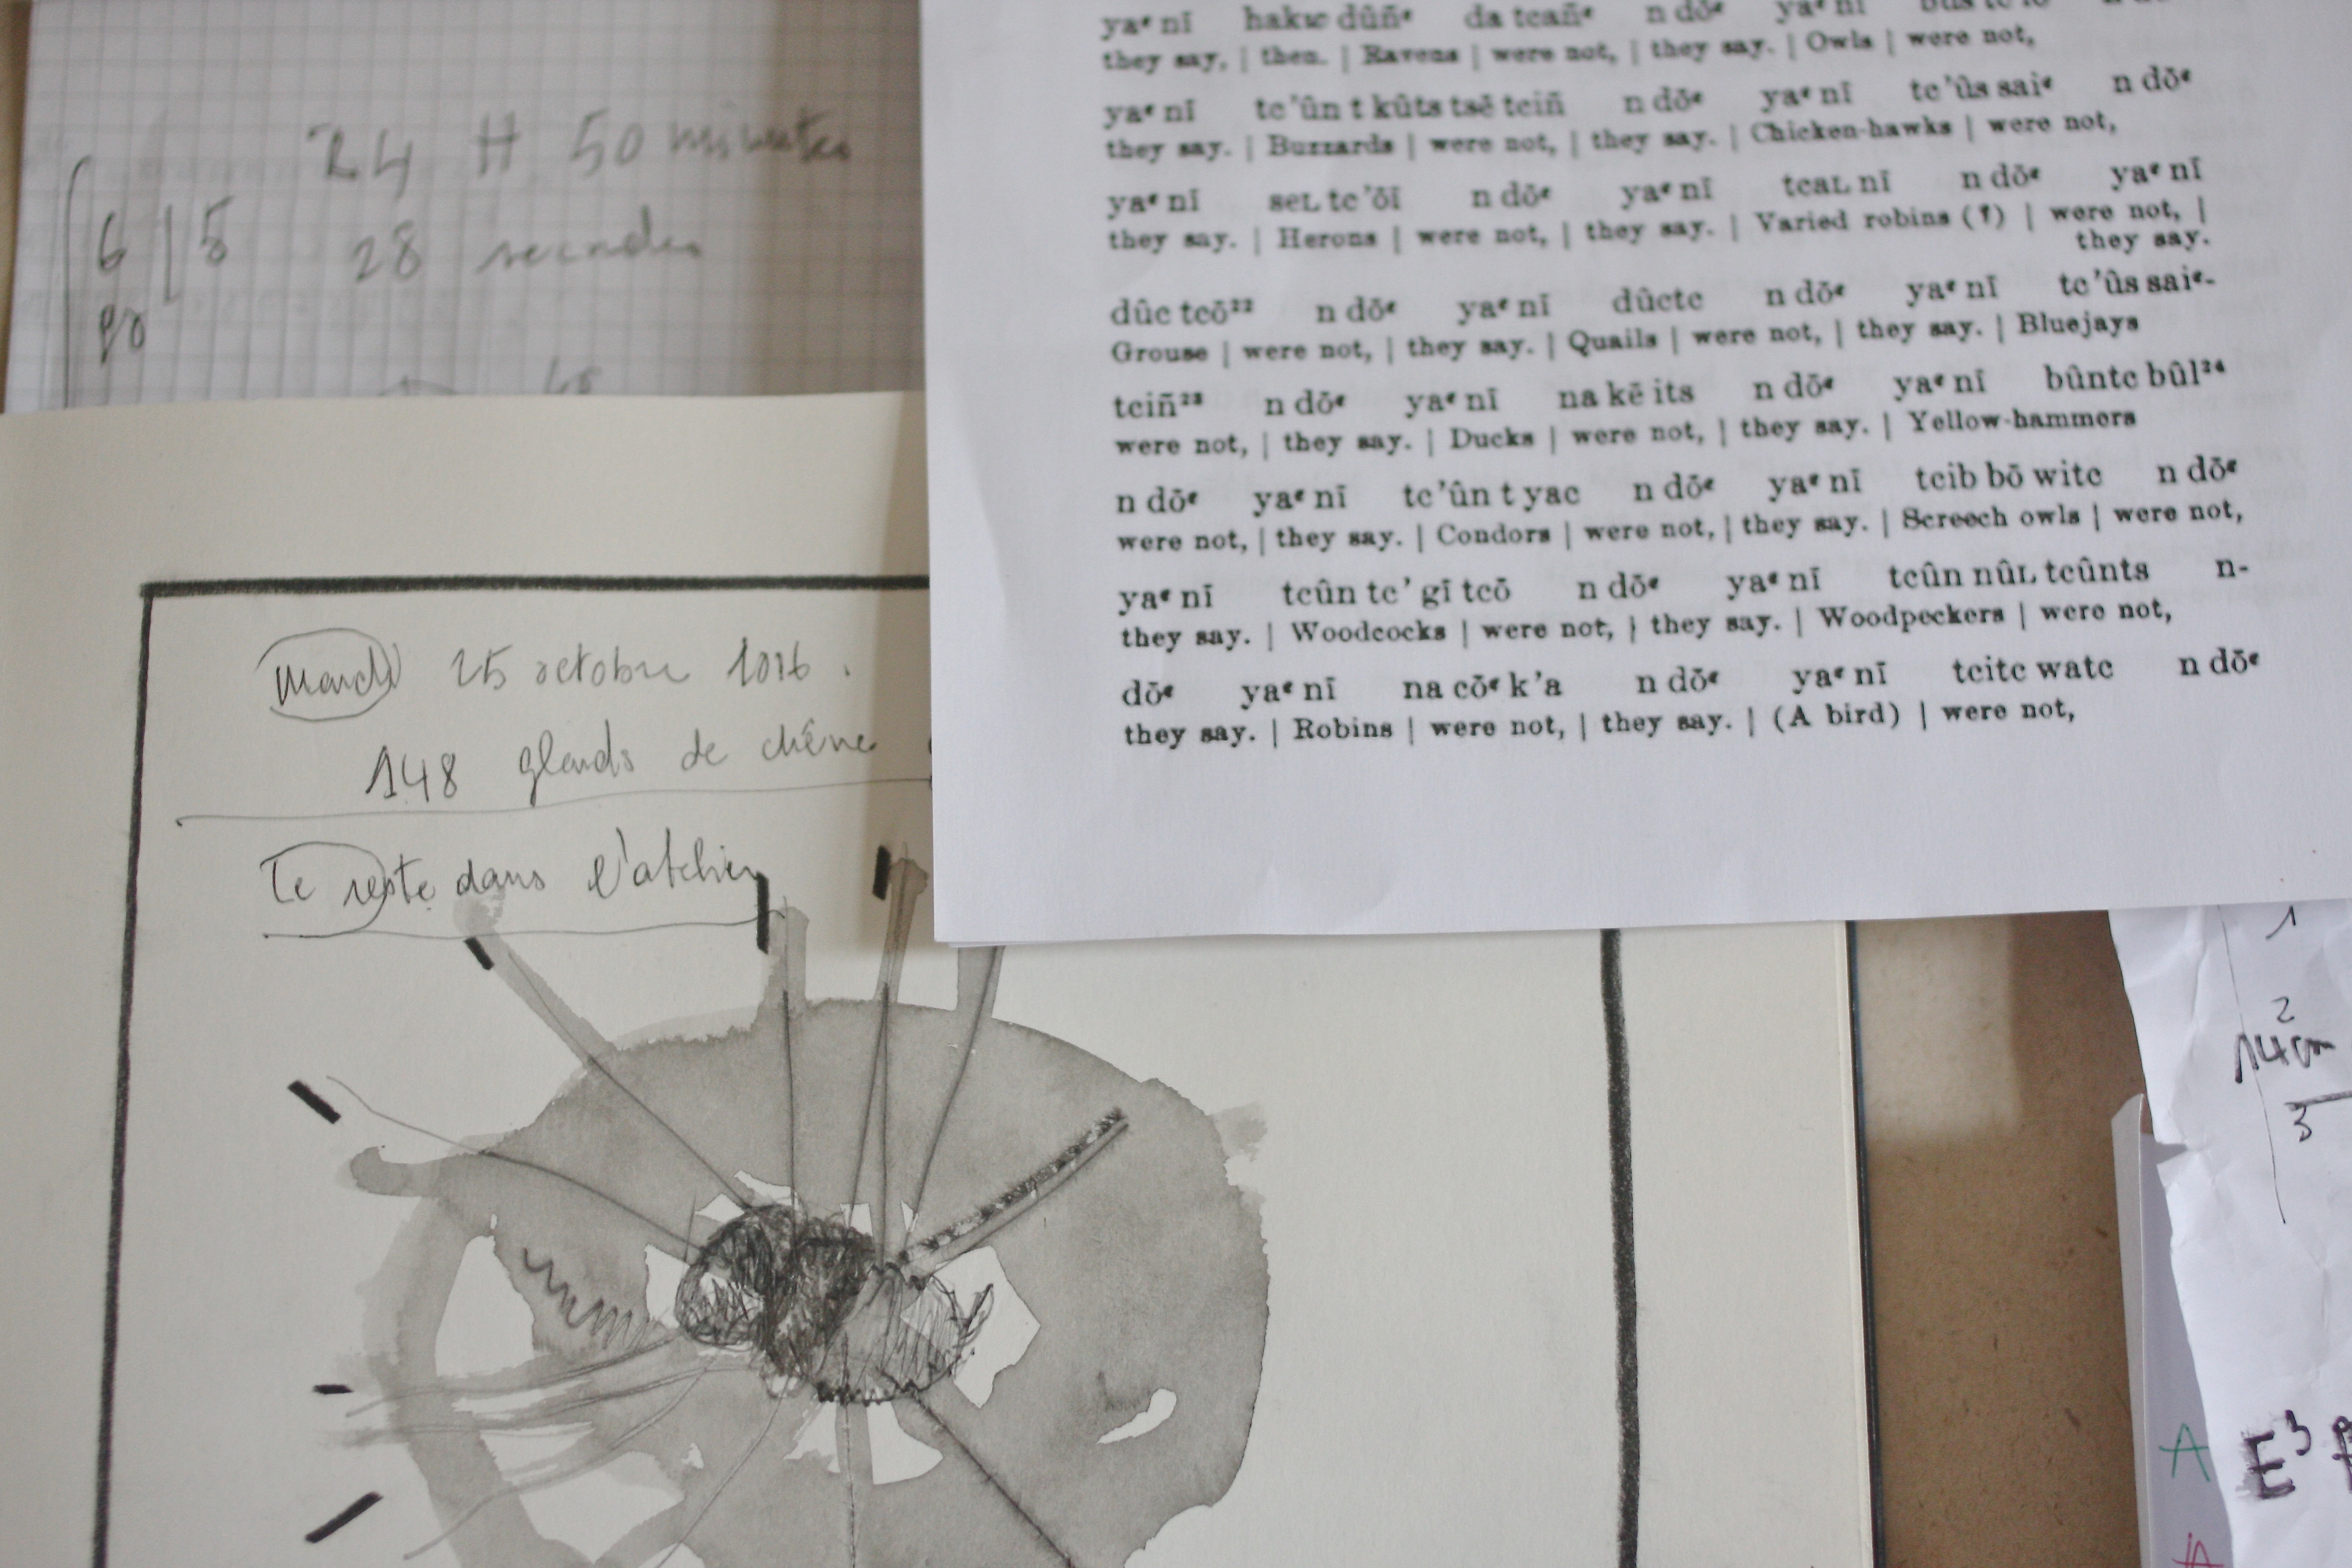 24 H 50 minutes
6 | 5 28 secondes
90
yaᵋ nī hakw dûñᵋ da tcañᵋ n dōᵋ yaᵋ nī
they say, | then. | Ravens | were not, | they say. | Owls | were not,
yaᵋ nī tc'ûn t kûts tsē tciñ n dōᵋ yaᵋ nī tc'ûs saiᵋ n dōᵋ
they say. | Buzzards | were not, | they say. | Chicken-hawks | were not,
yaᵋ nī seʟ tc'ōī n dōᵋ yaᵋ nī tcaʟ nī n dōᵋ yaᵋ nī
they say. | Herons | were not, | they say. | Varied robins (?) | were not, |
they say.
dûc tcō²² n dōᵋ yaᵋ nī dûctc n dōᵋ yaᵋ nī tc'ûs saiᵋ-
Grouse | were not, | they say. | Quails | were not, | they say. | Bluejays
tciñ²³ n dōᵋ yaᵋ nī na kē its n dōᵋ yaᵋ nī bûntc bûl²⁴
were not, | they say. | Ducks | were not, | they say. | Yellow-hammers
n dōᵋ yaᵋ nī tc'ûn t yac n dōᵋ yaᵋ nī tcib bō witc n dōᵋ
were not, | they say. | Condors | were not, | they say. | Screech owls | were not,
yaᵋ nī tcûn tc' gī tcō n dōᵋ yaᵋ nī tcûn nûʟ tcûnts n-
they say. | Woodcocks | were not, | they say. | Woodpeckers | were not,
dōᵋ yaᵋ nī na cōᵋ k'a n dōᵋ yaᵋ nī tcitc watc n dōᵋ
they say. | Robins | were not, | they say. | (A bird) | were not,
Mardi 25 octobre 2016.
148 glands de chêne
Le reste dans l'atelier
1
2
14 cm
3
A
E³
A